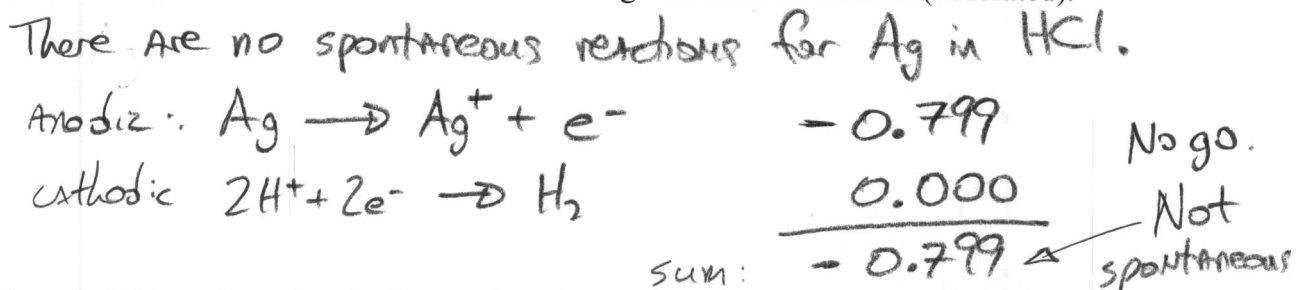 There are no spontaneous reactions for Ag in HCl.
Anodic: Ag → Ag⁺ + e⁻ - 0.799 No go.
cathodic 2H⁺ + 2e⁻ → H₂ 0.000 Not
sum: - 0.799 spontaneous